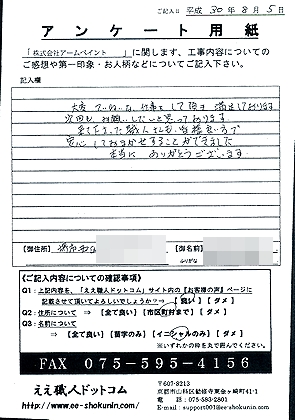 ご記入日 平成 30年 8月 5日
アンケート用紙
「株式会社アームペイント」に関しまず、工事内容についての
ご感想や第一印象・お人柄などについてご記入下さい。
記入欄
大変 ていねいな 仕事をして頂き 満足しております
次回も お願いしたいと思っております
来て下さった職人さんも 皆様良い方で
安心して おまかせすることができました
本当に ありがとうございます
【御住所】
【御名前】
ふりがな
《ご記入内容についての確認事項》
Q1:上記内容を、「ええ職人ドットコム」サイト内の『お客様の声』ページに
記載させて頂いてよろしいでしょうか?⇒【良い】【ダメ】
Q2:住所について ⇒【全て良い】【市区町村まで】【ダメ】
Q3:名前について
⇒【全て良い】【苗字のみ】【イニシャルのみ】【ダメ】
※いずれかの枠を丸で囲んでください。
FAX 075-595-4156
ええ職人ドットコム
http://www.ee-shokunin.com
〒607-8213
京都市山科区勧修寺東出町41-1
電話:075-583-2801
E-mail:support001@ee-shokunin.com